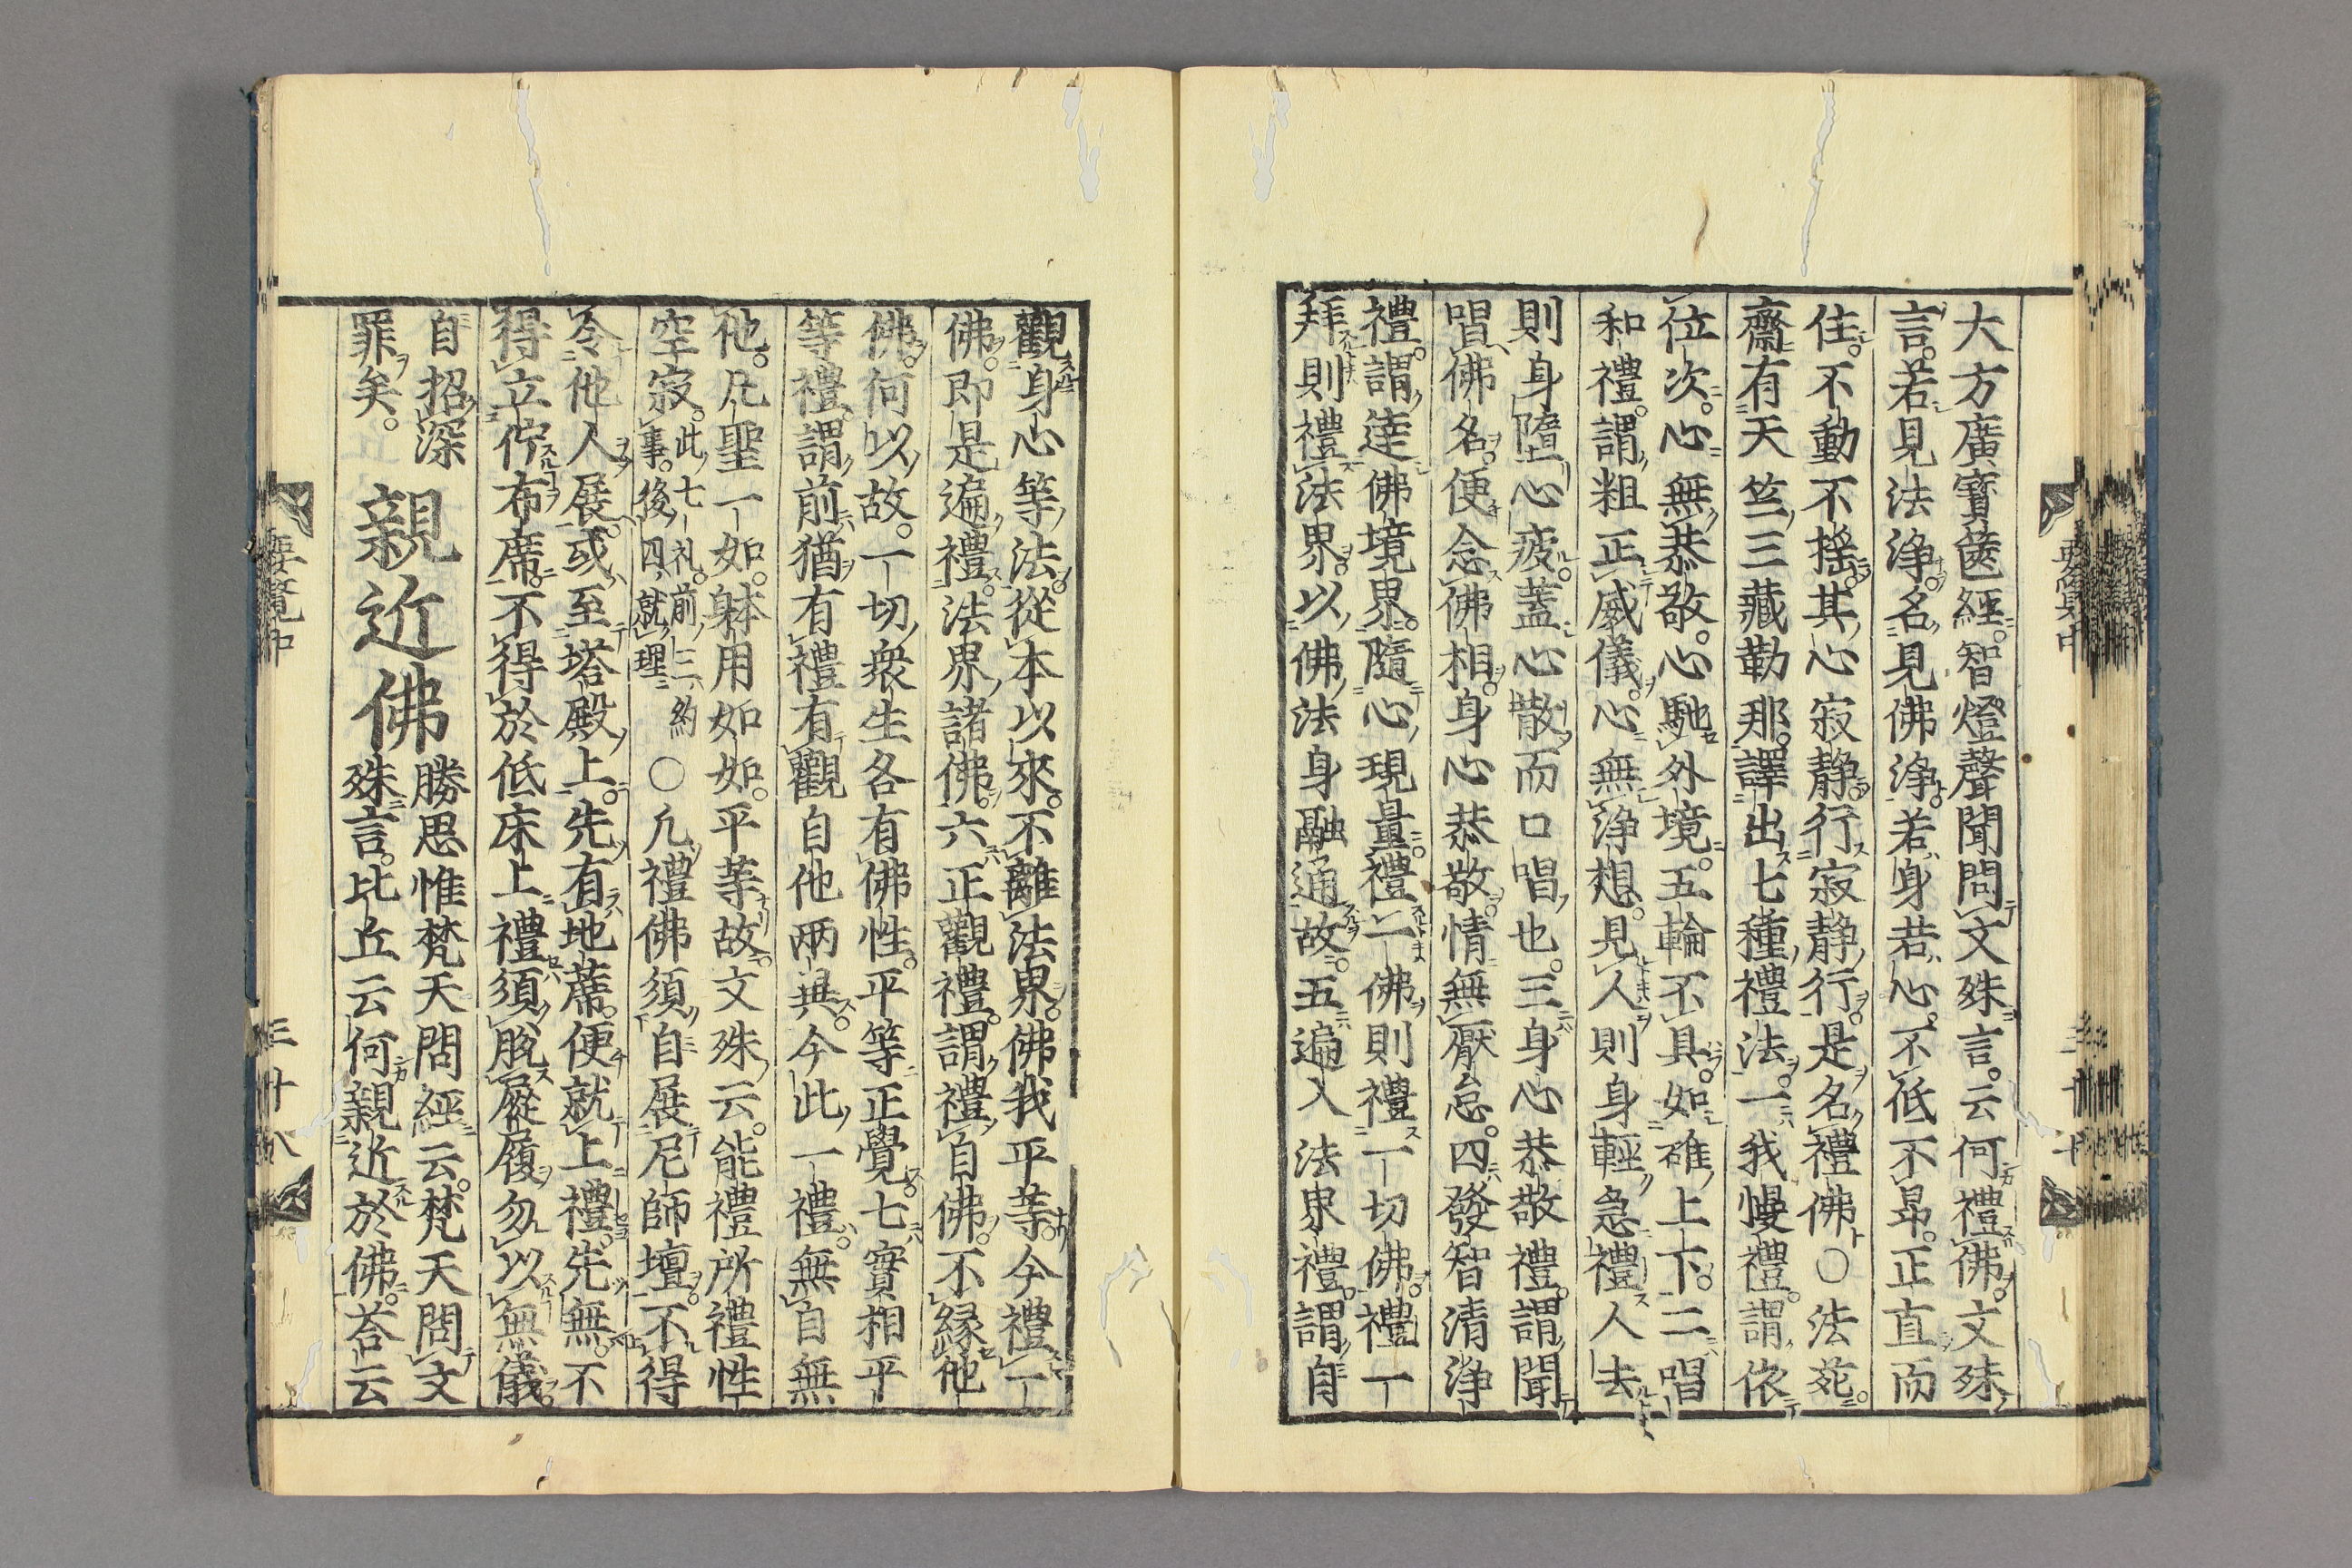 大方廣寶篋經。智燈聲聞問文殊言。云何禮佛。文殊
言。若見法淨。名見佛淨。若身若心。不低不昂。正直而
住。不動不搖。其心寂静。行寂静行。是名禮佛〇法苑。
齋有天竺三藏勒那。譯出七種禮法。一我慢禮。謂依
位次。心無恭敬。心馳外境。五輪不具。如碓上下。二唱
和禮。謂粗正威儀。心無淨想。見人則身輕急禮人去
則身墮心疲。蓋心散而口唱也。三身心恭敬禮。謂聞
唱佛名。便念佛相。身心恭敬。情無厭怠。四發智清淨
禮。謂達佛境界。隨心現量。禮一佛則禮一切佛。禮一
拜則禮法界。以佛法身融通故。五遍入法界禮。謂自
觀身心等法。從本以來。不離法界。佛我平等。今禮一
佛。即是遍禮法界諸佛。六正觀禮。謂禮自佛。不緣他
佛。何以故。一切衆生各有佛性。平等正覺。七實相平
等禮。謂前猶有禮有觀自他兩異。今此一禮。無自無
他。凡聖一如。躰用如如。平等故。文殊云。能禮所禮性
空寂。此七礼。前三約事。後四就理〇凡禮佛須自展尼師壇。不得
令他人展。或至塔殿上。先有地蓆。便就上禮。先無。不
得立佇布席。不得於低床上禮須脫屣履勿以無儀
自招深
罪矣。
親近佛
勝思惟梵天問經云。梵天問文
殊言。比丘云何親近於佛。荅云
要覽中
三十八